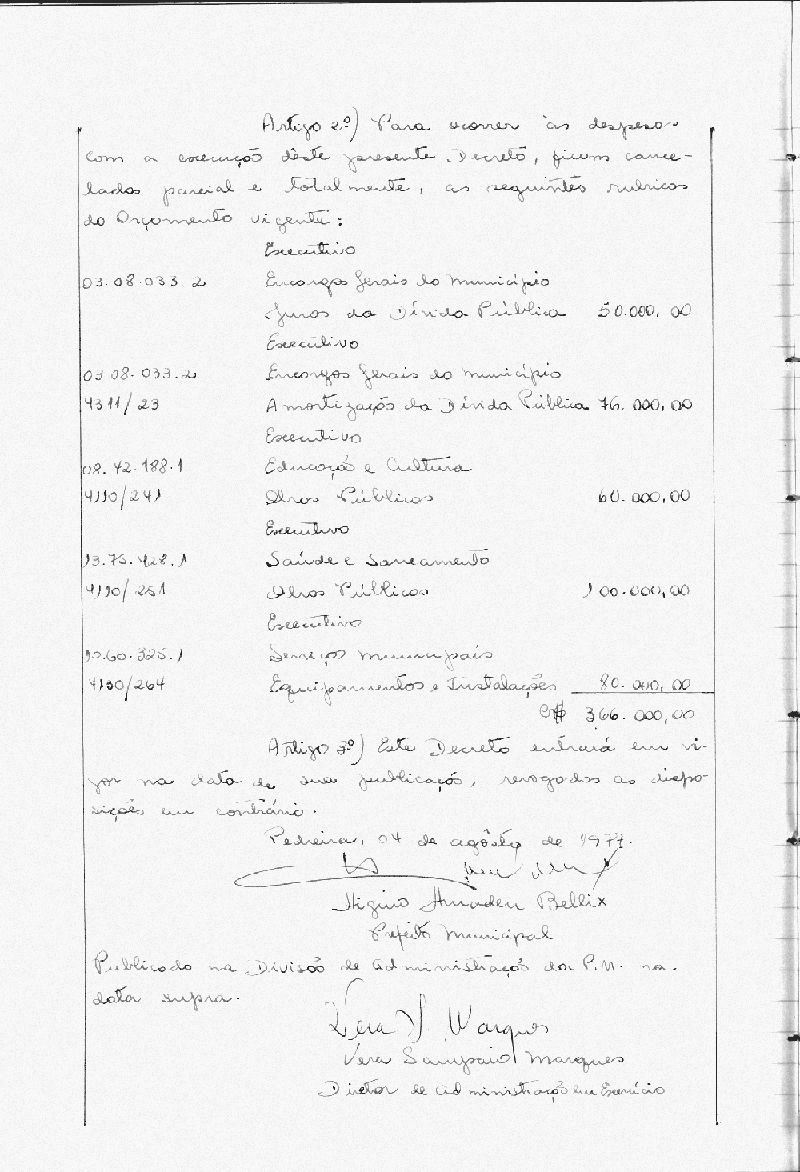 Artigo 2º) Para ocorrer às despesas
com a execução dêste presente Decreto, ficam cance-
lados parcial e totalmente, as seguintes rubricas
do Orçamento vigente:
Executivo
03.08.033.2 Encargos Gerais do Município
Juros da Dívida Pública 50.000,00
Executivo
03.08.033.2 Encargos Gerais do Município
4311/23 Amortização da Dívida Pública 76.000,00
Executivo
08.42.188.1 Educação e Cultura
4110/241 Obras Públicas 60.000,00
Executivo
13.75.428.1 Saúde e Saneamento
4110/251 Obras Públicas 100.000,00
Executivo
10.60.325.1 Serviços Municipais
4130/264 Equipamentos e Instalações 80.000,00
Cr$ 366.000,00
Artigo 3º) Este Decreto entrará em vi-
gor na data de sua publicação, revogadas as dispo-
sições em contrário.
Pedreira, 04 de agôsto de 1977.
Higino Amadeu Bellix
Prefeito Municipal
Publicado na Divisão de Administração da P.M. na
data supra.
Vera S Marques
Vera Sampaio Marques
Diretor de Administração em Exercício